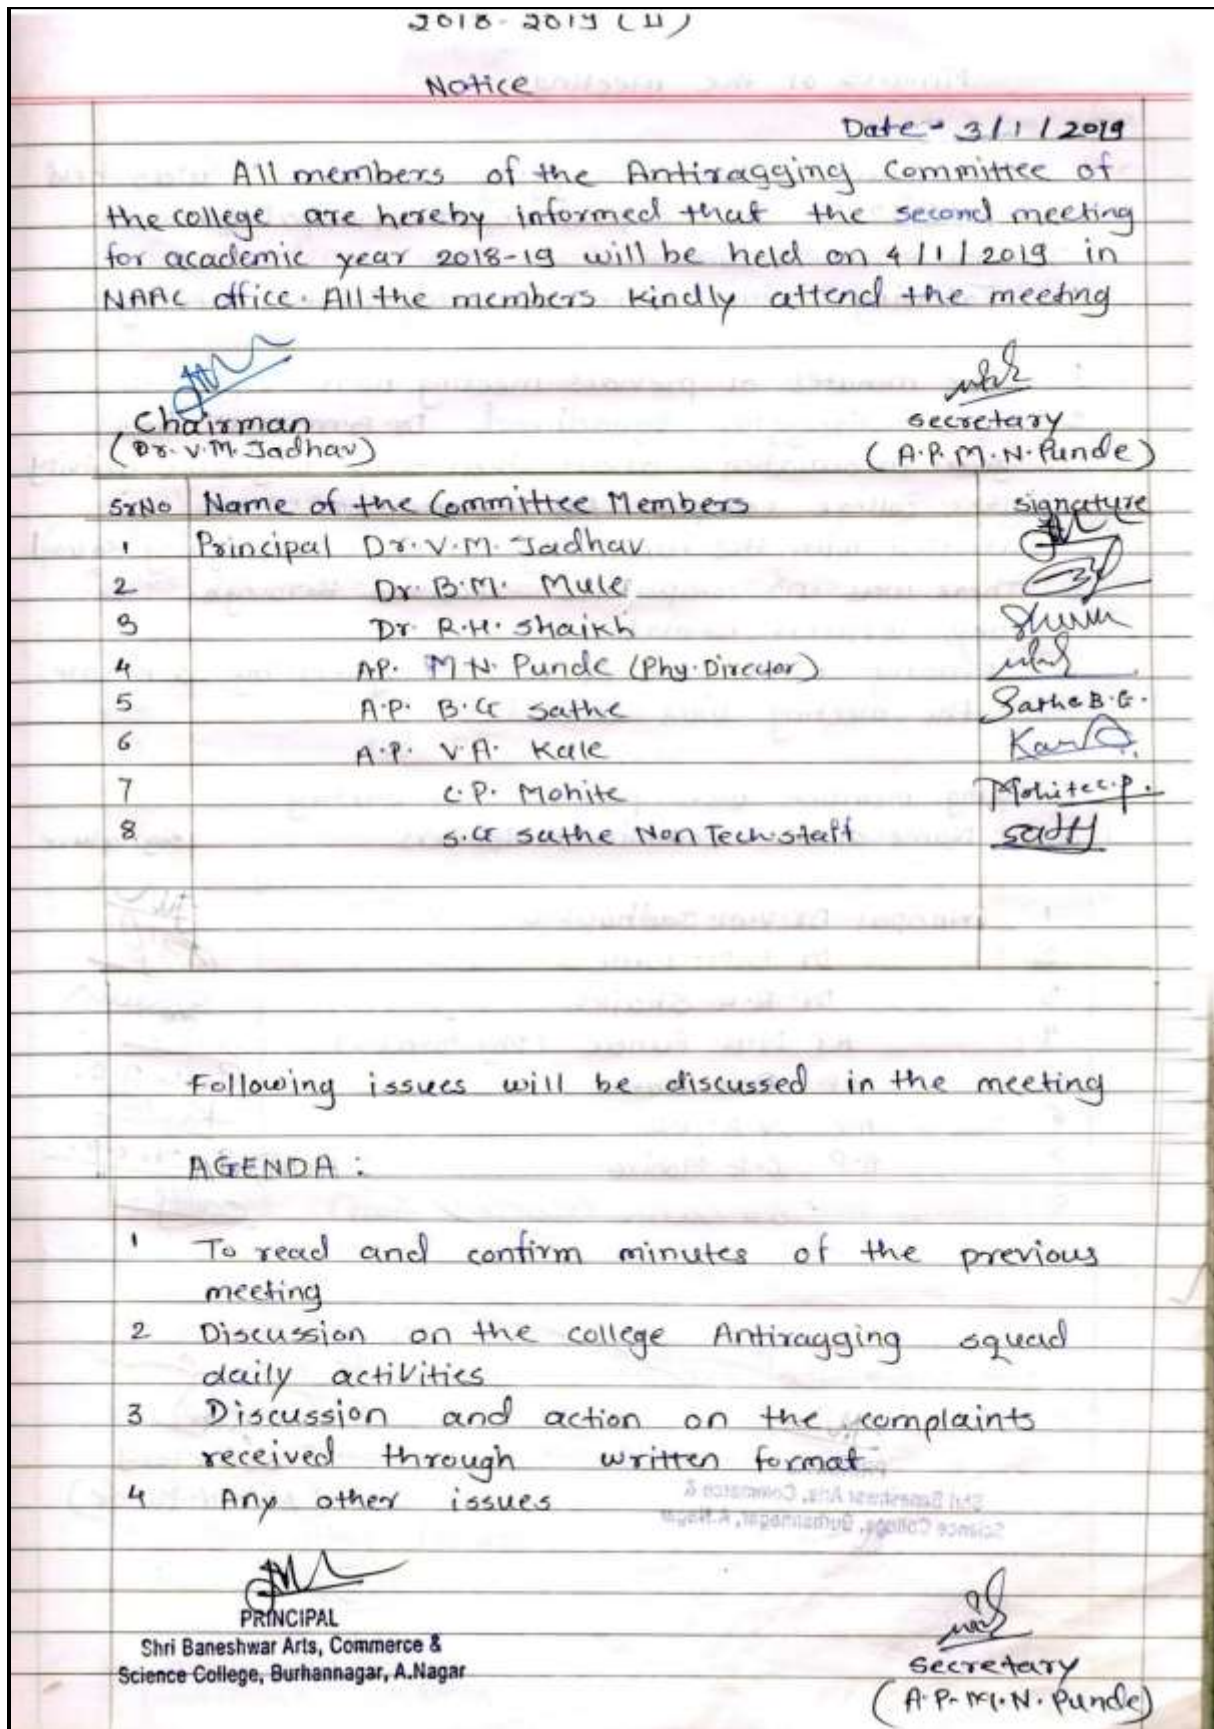 2018-2019 (II)
Notice
Date- 3/1/2019
All members of the Antiragging Committee of
the college are hereby informed that the second meeting
for academic year 2018-19 will be held on 4/1/2019 in
NAAC office. All the members kindly attend the meeting
Chairman
(Dr. V.M. Jadhav)
secretary
(A.P. M.N. Punde)
SrNo Name of the Committee Members signature
1 Principal Dr. V.M. Jadhav
2 Dr. B.M. Mule
3 Dr. R.H. Shaikh
4 AP. M N. Punde (Phy. Director)
5 A.P. B.G Sathe Sathe B.G.
6 A.P. V.A. Kale
7 C.P. Mohite Mohite C.P.
8 S.G Sathe Non Tech. staff
Following issues will be discussed in the meeting
AGENDA :
1 To read and confirm minutes of the previous
meeting
2 Discussion on the college Antiragging squad
daily activities
3 Discussion and action on the complaints
received through written format
4 Any other issues
PRINCIPAL
Shri Baneshwar Arts, Commerce &
Science College, Burhannagar, A.Nagar
Secretary
(A.P. M.N. Punde)